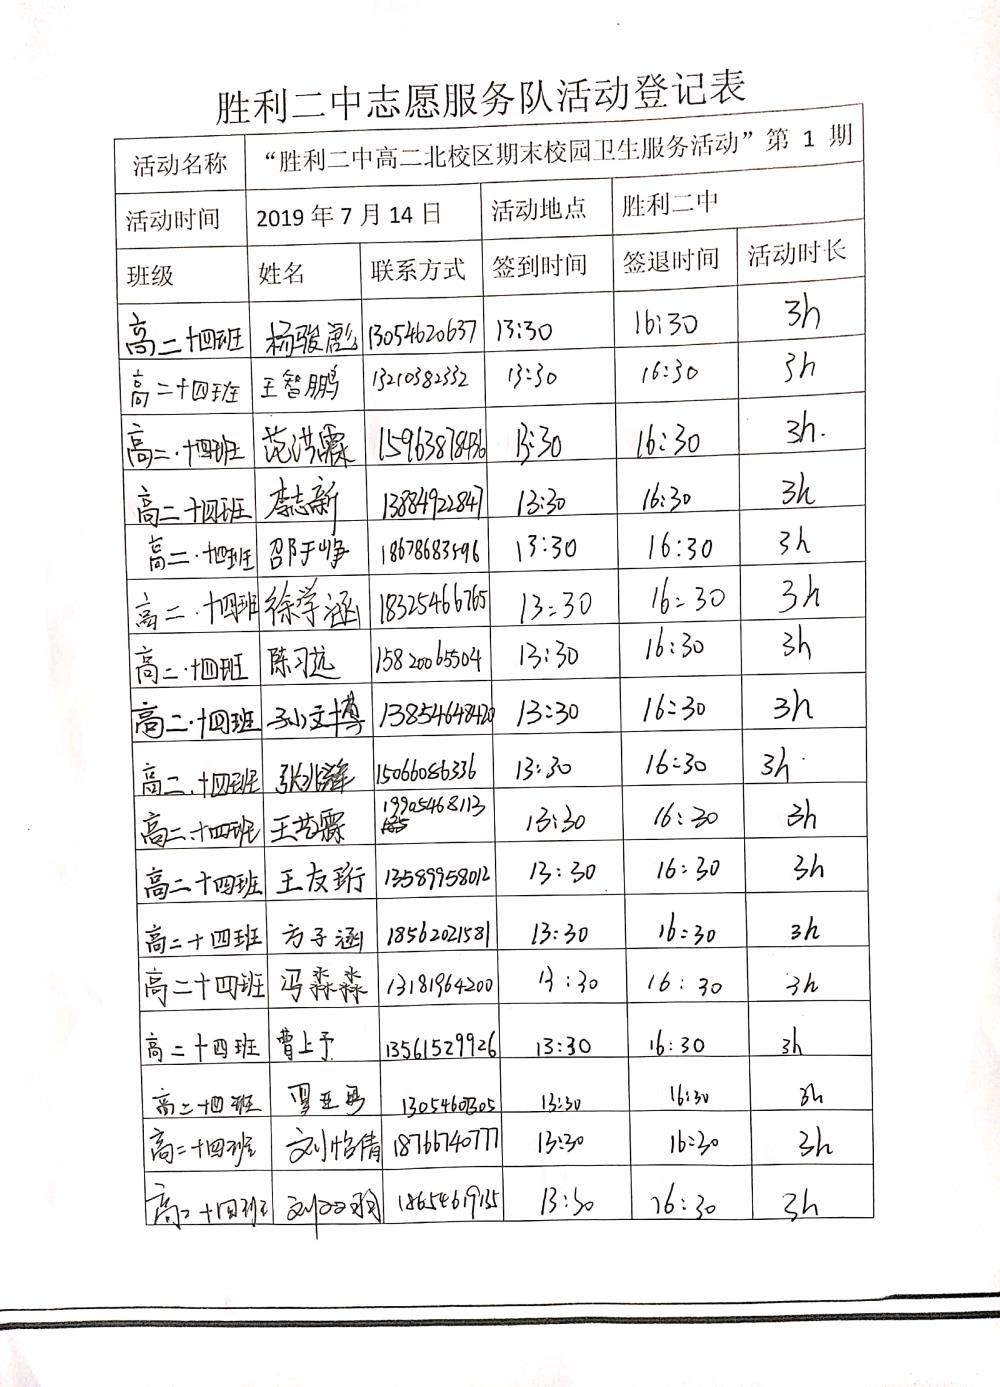 胜利二中志愿服务队活动登记表
活动名称 “胜利二中高二北校区期末校园卫生服务活动”第 1 期
活动时间 2019 年 7 月 14 日 活动地点 胜利二中
班级 姓名 联系方式 签到时间 签退时间 活动时长
高二十四班 杨骏彪 13054620637 13:30 16:30 3h
高二十四班 王智鹏 13210382332 13:30 16:30 3h
高二·十四班 范洪霖 15963878436 13:30 16:30 3h.
高二十四班 李志新 13884922847 13:30 16:30 3h
高二·十四班 邵于峥 18678683596 13:30 16:30 3h
高二·十四班 徐学涵 18325466765 13:30 16:30 3h
高二·十四班 陈习远 15820065504 13:30 16:30 3h
高二·十四班 孙文博 13854648420 13:30 16:30 3h
高二.十四班 张兆泽 15066086336 13:30 16:30 3h
高二十四班 王艺霖 19905468113 13:30 16:30 3h
高二十四班 王友珩 13589958012 13:30 16:30 3h
高二十四班 方子涵 18562021581 13:30 16:30 3h
高二十四班 冯淼淼 13181964200 13:30 16:30 3h
高二十四班 曹上予 13561529926 13:30 16:30 3h
高二十四班 13:30 16:30 3h
高二十四班 刘怡倩 18766740777 13:30 16:30 3h
高二十四班 18654619135 13:30 16:30 3h